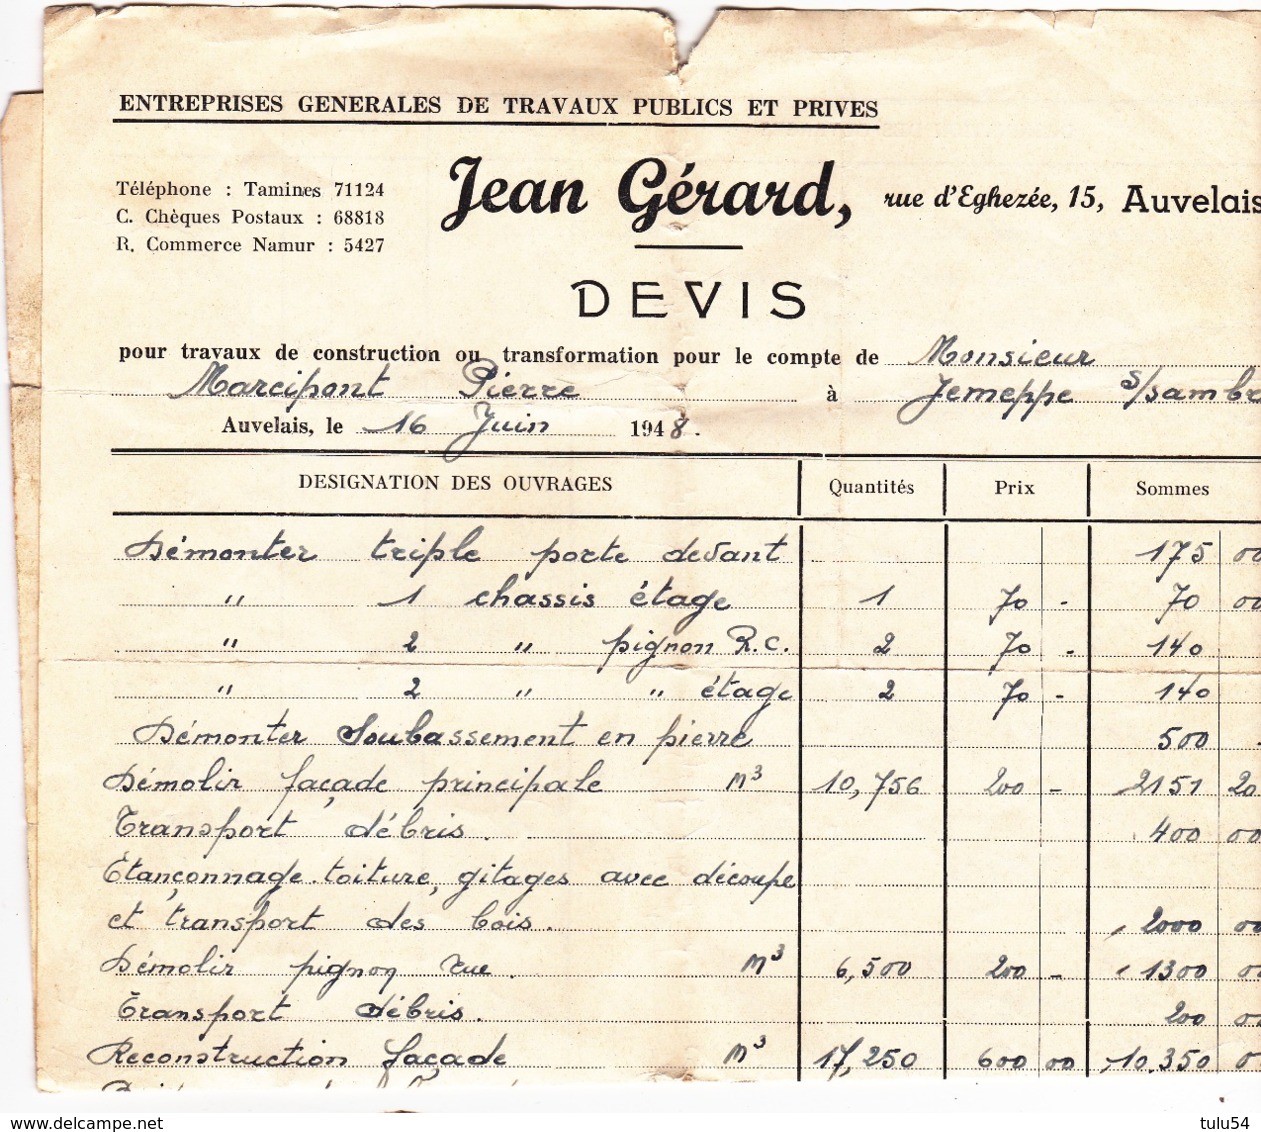 ENTREPRISES GENERALES DE TRAVAUX PUBLICS ET PRIVES
Téléphone : Tamines 71124
C. Chèques Postaux : 68818
R. Commerce Namur : 5427
Jean Gérard, rue d'Eghezée, 15, Auvelais
DEVIS
pour travaux de construction ou transformation pour le compte de Monsieur
Marcipont Pierre à Jemeppe s/sambr
Auvelais, le 16 Juin 1948.
DESIGNATION DES OUVRAGES Quantités Prix Sommes
Démonter triple porte devant 175 00
" 1 chassis étage 1 70 - 70 00
" 2 " pignon R.C. 2 70 - 140
" 2 " " étage 2 70 - 140
Démonter Soubassement en pierre 500 -
Démolir façade principale M³ 10,756 200 - 2151 20
Transport débris. 400 00
Étançonnage toiture, gitages avec découpe
et transport des bois. 2000 00
Démolir pignon rue. M³ 6,500 200 - 1300 00
Transport débris. 200 00
Reconstruction façade M³ 17,250 600 00 10.350 0
delcampe.net
tulu54